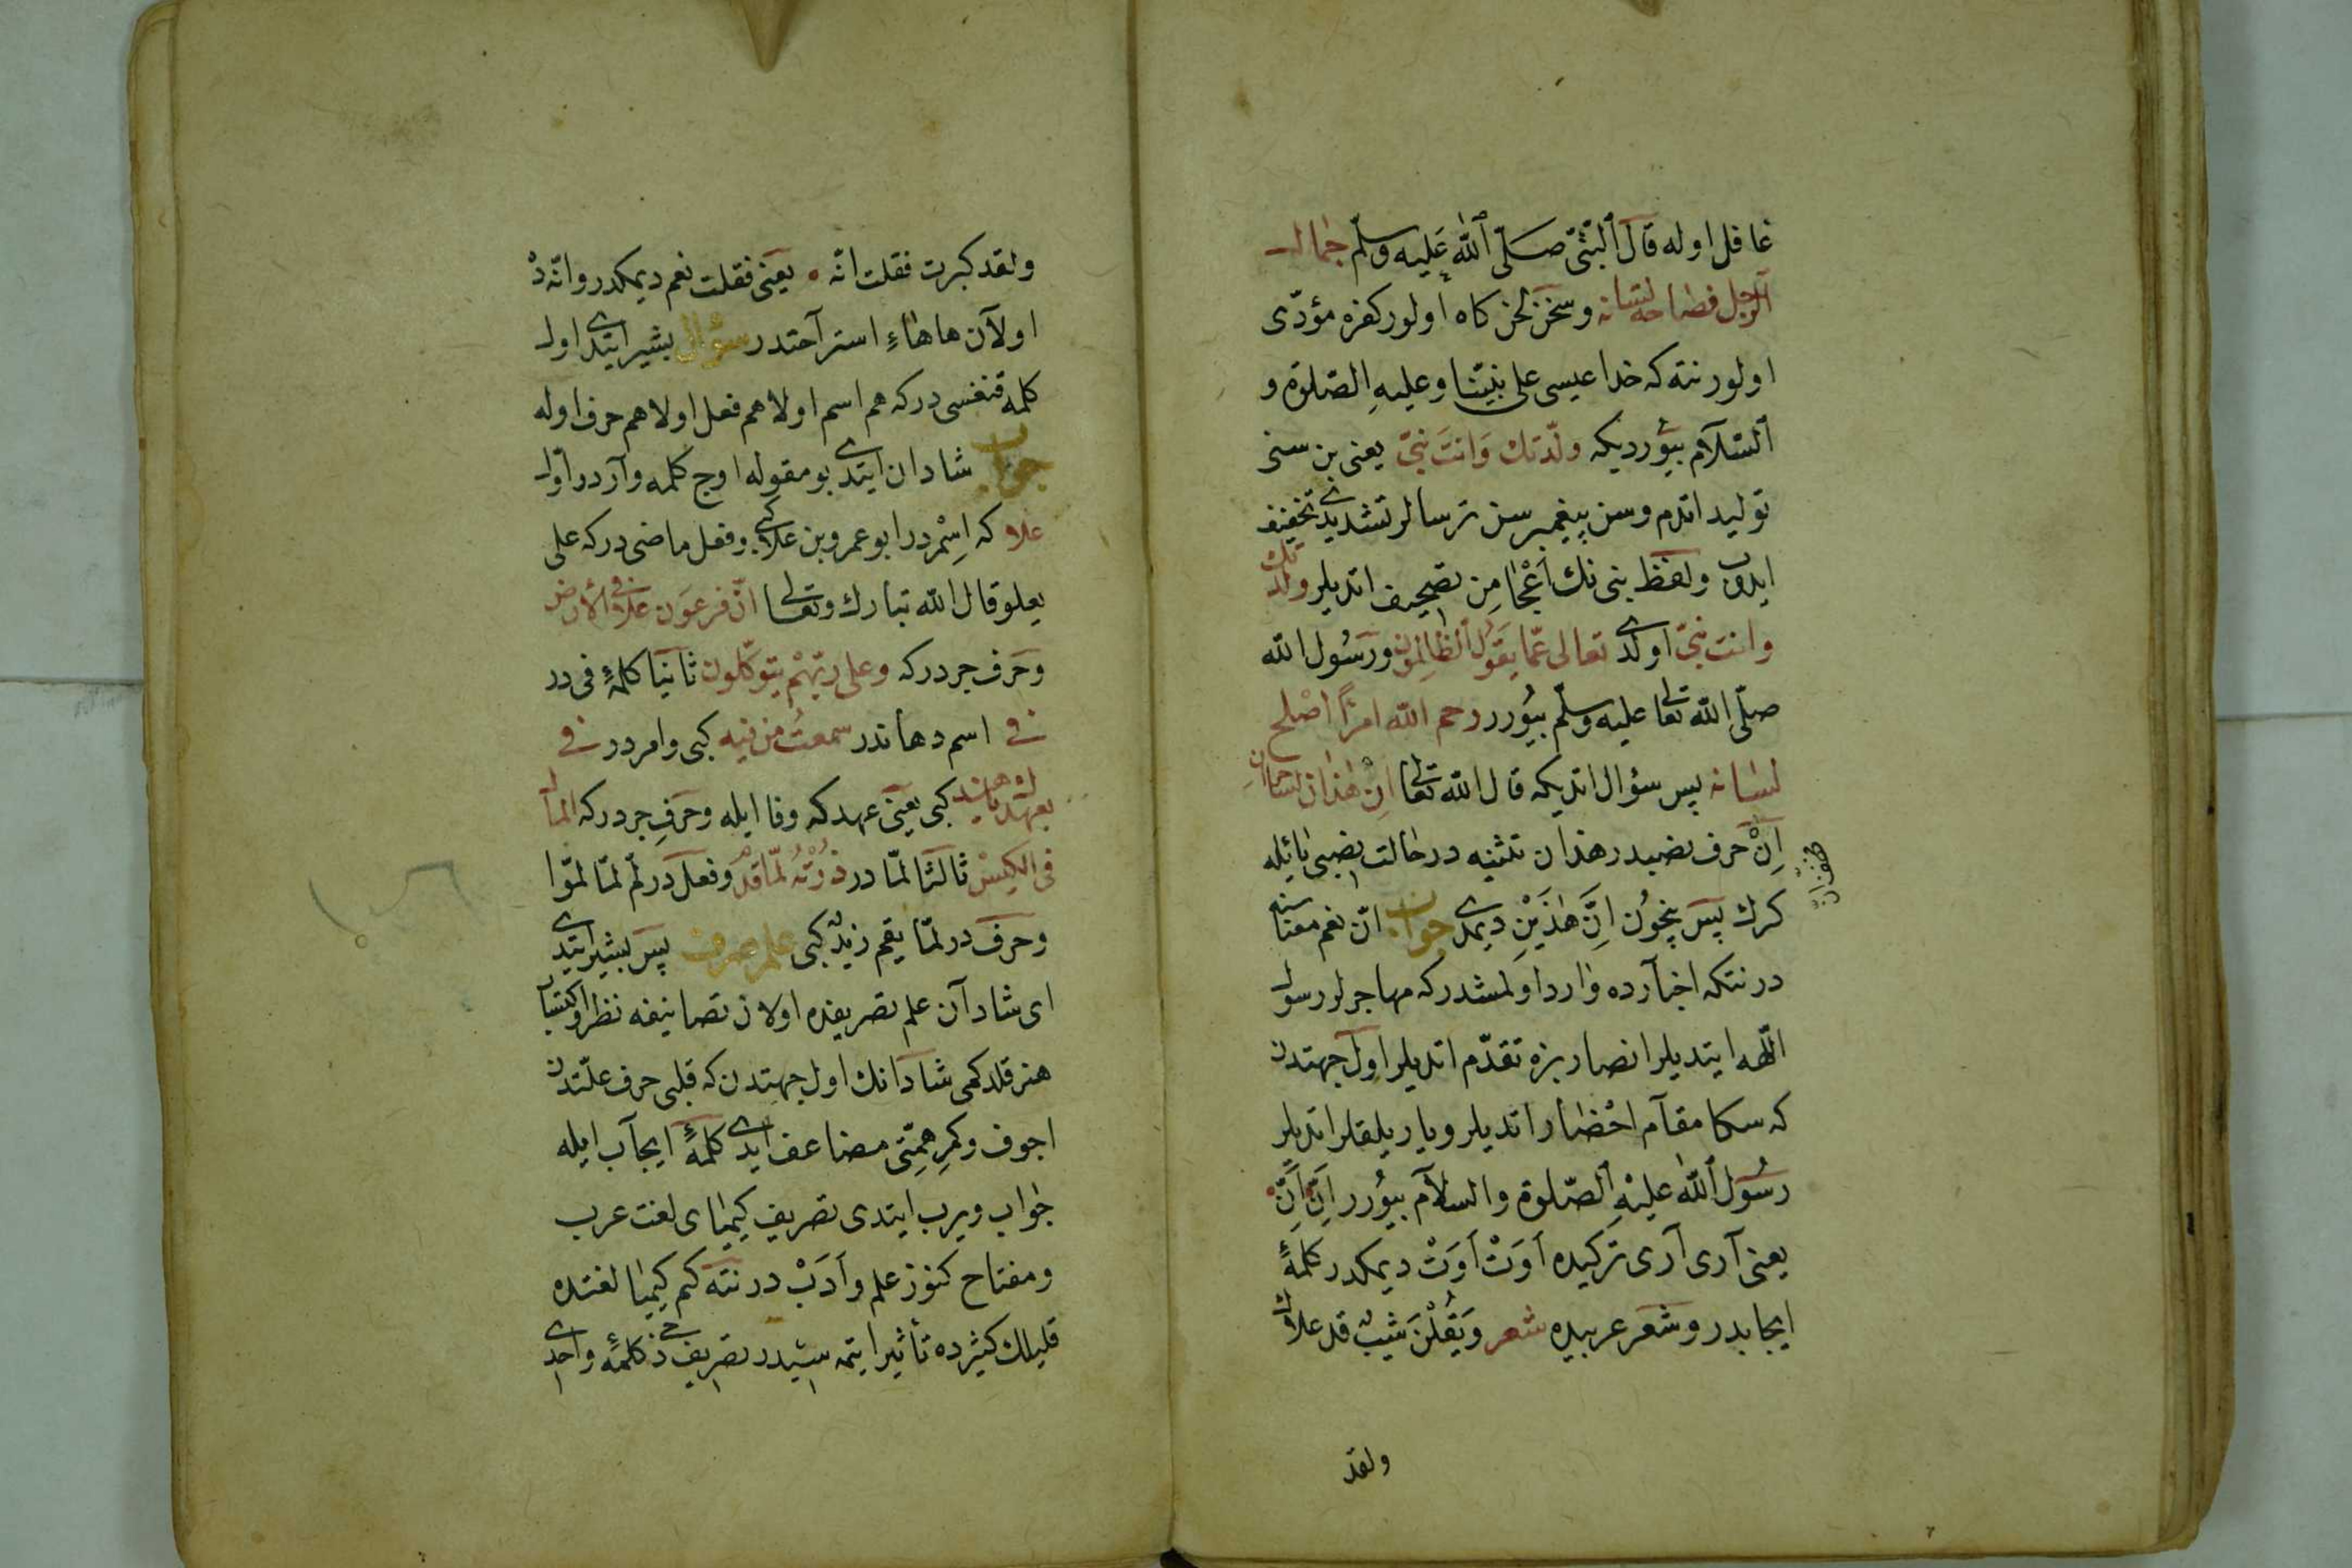 غافل اوله قال ٱلنّبیّ صَلّی ٱللّٰه عَلیه وسلّم جمال
ٱلرّجل فصاحة لسانه وسخن لحن كاه اولور كفره مؤدّی
اولور نته كه خدا عیسی علی نبیّنا وعلیهِ الصّلوة و
ٱلسّلآم بیُورر دیكه ولّدتك وَانتَ نبیّ یعنی بن سنی
تولید اتدم وسن پیغمبرسن ترسالر تشدیدی تخفیف
ایدوب ولفظ نبی نك اَعْجامِن تصحیف اتدیلر ولدتك
وانت بنیّ اولدی تعالی عمّا یَقُولُ ٱلظّالِمُون ورَسُول الله
صلّی اللّه تعالی علیه وسلّم بیُورر رحم اللّه امرًأ اَصْلح
لسانه پس سؤال اتدیكه قال اللّه تعالی اِنّ هٰذان لسَاحرانِ
اِنّ حَرف نصبدر هذان تثنیه در حالت نصبی یائیله
كرك پس نیچون اِنَّ هٰذَیْنِ دیمدی جواب انّ نعم معناسنه
در نتكه اخبارده وارد اولمشدر كه مهاجرلر رسول
اللّه ایتدیلر انصار بزه تقدّم اتدیلر اول جهتدن
كه سكا مقآم احْضار اتدیلر ویاریلقلر اتدیلر
رسُول ٱللّٰه علیْهِ ٱلصّلوة والسّلآم بیُورر اِنَّ اِنَّ
یعنی آری آری تركیده اَوَتْ اَوَتْ دیمكدر كلمهٔ
ایجابدر وشعر عربیده شعر وَیَقُلْنَ شَیْبٌ قد علاك
ولقد
ولقد كبرت فقلت انّه ۰ یعنی فقلت نعم دیمكدر وانّه ده
اولآن ها هاءِ استرآحتدر سؤال بشیر ایتدی اول
كلمه قنغسی در كه هم اسم اولا هم فعل اولا هم حرف اوله
جواب شادان ایتدی بو مقوله اوج كلمه وآردر اوّل
علا كه اِسْمدر ابو عمرو بن علا كبی وفعل ماضی در كه علی
یعلو قال اللّه تبارك وتعالی انّ فرعَون عَلا فی الْأرض
وحَرف جردر كه وعلی ربّهِمْ یتوكّلون ثانیًا كلمهٔ فی در
فی اسم دهاندر سمعتُ من فیه كبی وامردر فی
بعهدك یا هند كبی یعنی عهدكه وفا ایله وحَرفِ جردر كه المال
فی الكیسْ ثالثًا لمّا در زُرْتُهُ لمّا قدم وفعل در لمّ لمّا لمّوا
وحرف در لمّا یقم زیدٌ كبی علم صرف پس بشیر ایتدی
ای شادآن علم تصریفده اولان تصانیفه نظر واكتساب
هنر قلدكمی شادانك اول جهتدن كه قلبی حرف علّتدن
اجوف وكمرِ همّتی مضاعف ایدی كلمهٔ ایجآب ایله
جواب ویرب ایتدی تصریف كیمیای لغت عرب
ومفتاح كنوز علم واَدَبْ در نته كم كیمیا لغتده
قلیلك كثیرده تأثیر ایتمه سیدر تصریف دخی كلمهٔ واحدی